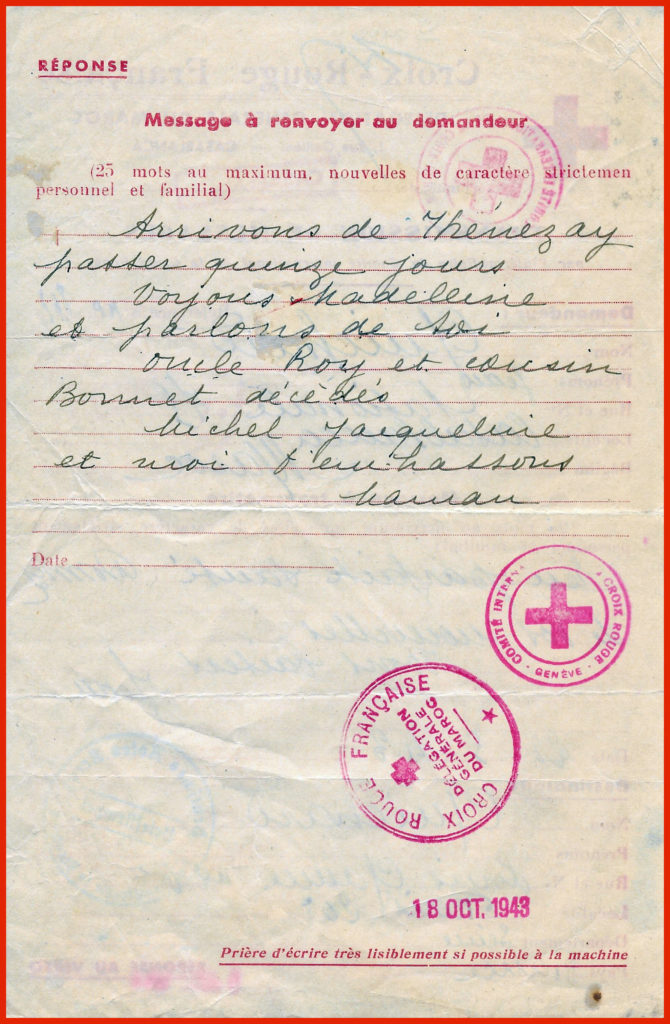 RÉPONSE
Message à renvoyer au demandeur
(25 mots au maximum, nouvelles de caractère strictemen
personnel et familial)
Arrivons de Thénezay
passer quinze jours
Voyons Madelleine
et parlons de toi
Oncle Roy et cousin
Bonnet décédés
Michel Jacqueline
et moi t'embrassons
Maman
Date
COMITÉ INTERNA CROIX ROUGE
GENÈVE
CROIX ROUGE FRANÇAISE
DÉLÉGATION
GÉNÉRALE
DU MAROC
18 OCT. 1943
Prière d'écrire très lisiblement si possible à la machine